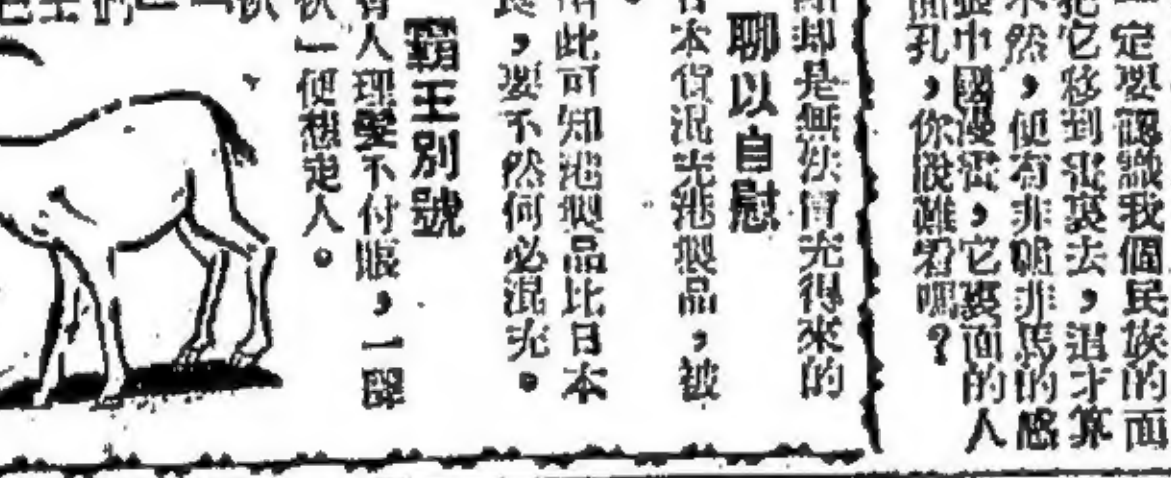 一定要認識我個民族的面
把它移到電裏去,這才算
不然,便有非驢非馬的感
張中國漫畫,它裏面的人
面孔,你說難看嗎?
却是無法冒充得來的
聊以自慰
本貨混充港製品,被
此可知港製品比日本
良,要不然何必混充。
霸王別號
人理髮不付賬,一聲
」便想走人。